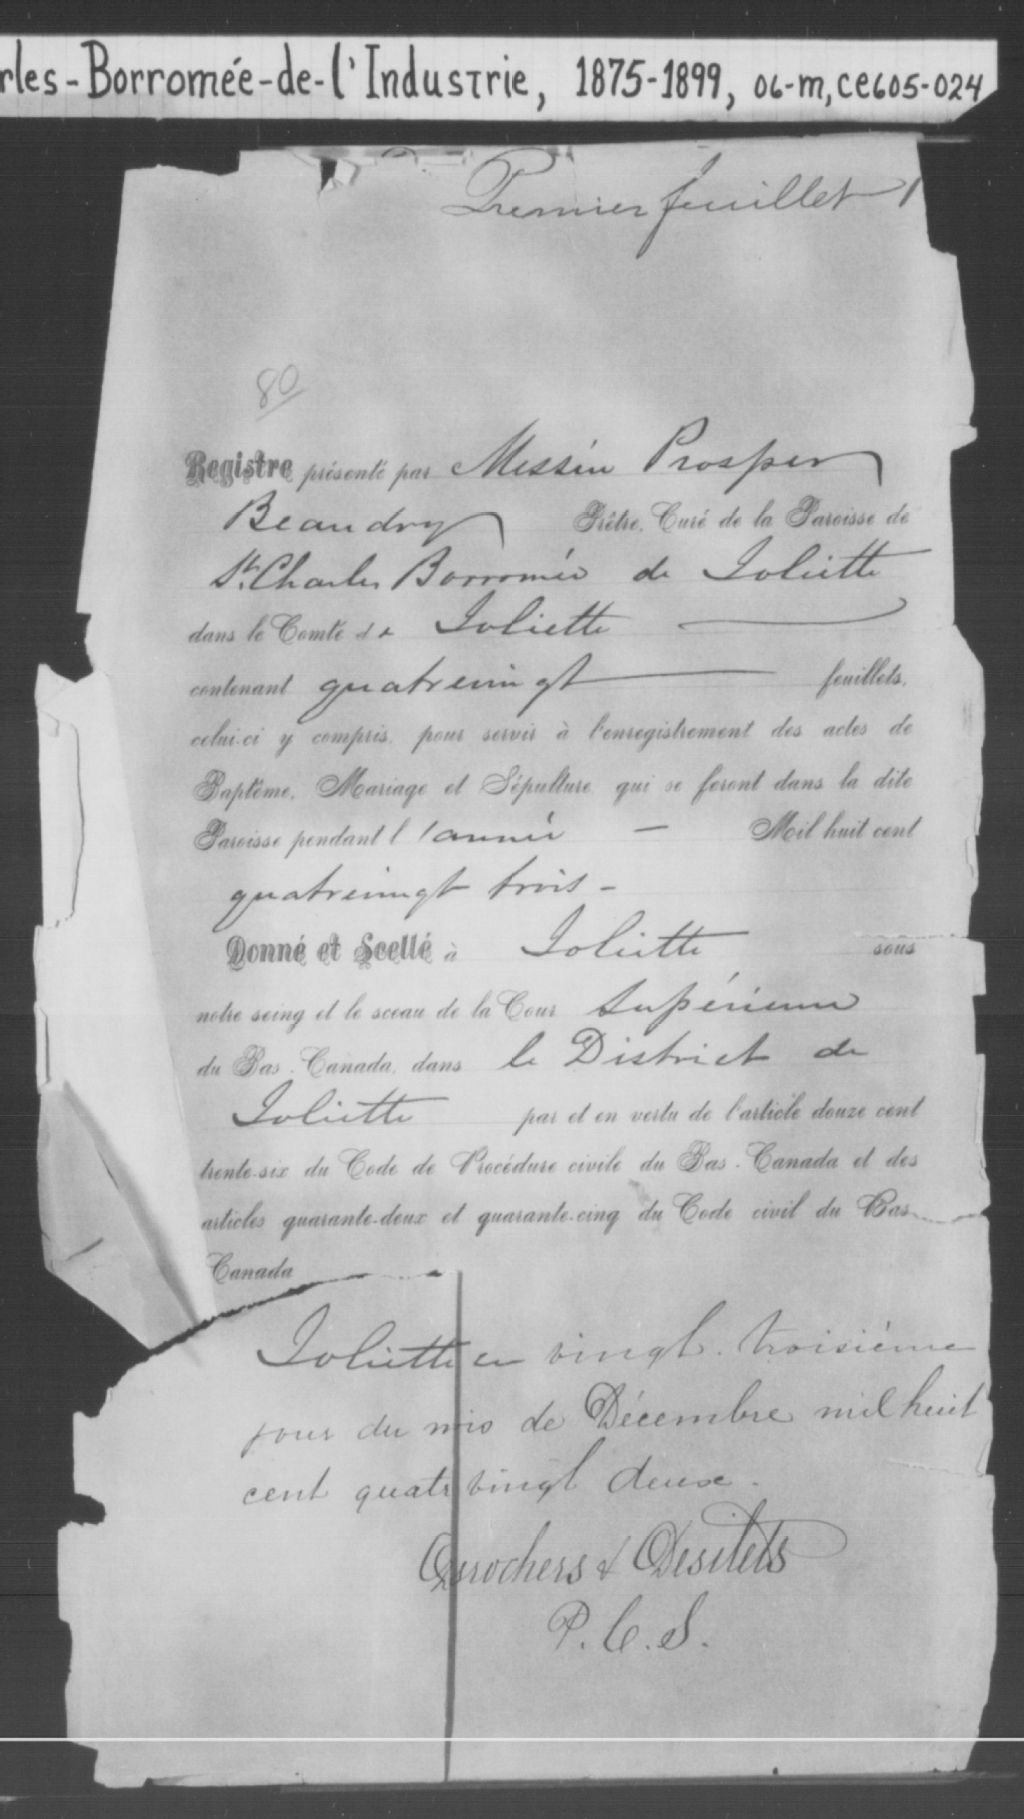 rles-Borromée-de-l'Industrie, 1875-1899, 06-m, CE605-024
Premier feuillet 1
80
Registre présenté par Messire Prosper
Beaudry Prêtre, Curé de la Paroisse de
St. Charles Borromée de Joliette
dans le Comté de Joliette
contenant quatrevingt feuillets,
celui-ci y compris, pour servir à l'enregistrement des actes de
Baptême, Mariage et Sépulture, qui se feront dans la dite
Paroisse pendant l'année — Mil huit cent
quatrevingt trois -
Donné et Scellé à Joliette sous
notre seing et le sceau de la Cour Supérieure
du Bas-Canada, dans le District de
Joliette par et en vertu de l'article douze cent
trente-six du Code de Procédure civile du Bas-Canada et des
articles quarante-deux et quarante-cinq du Code civil du Bas-
Canada
Joliette ce vingt-troisième
jour du mois de Décembre mil huit
cent quatrevingt deux.
Desrochers & Desilets
P.C.S.